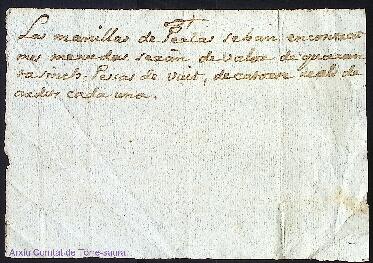 Las manillas de Perlas se han encontrat
mes menudas seran de valor de quaran
ta sinch Pesas de vuit, de catorse reals de
ardits cada una.
Arxiu Comtat de Torre-saura